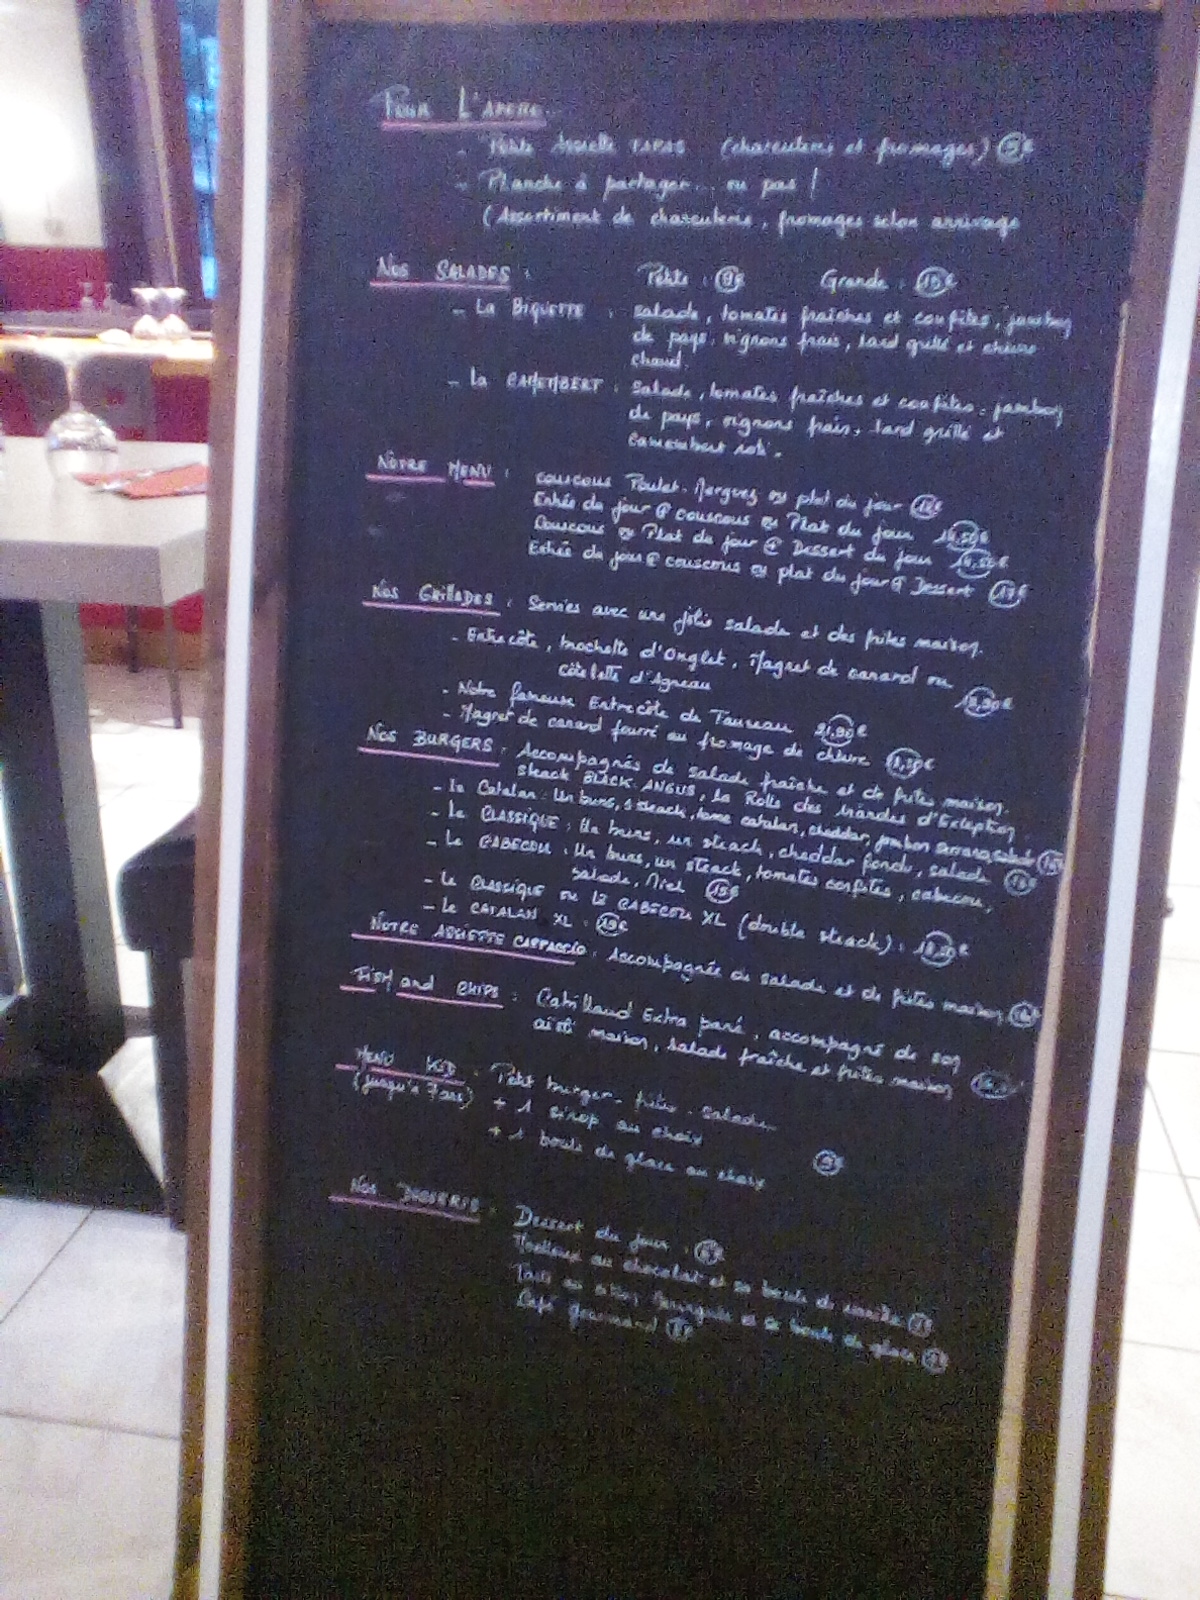 POUR L'APERO
- Petite Assiette TAPAS (charcuterie et fromages) 5€
- Planche à partager... ou pas !
(Assortiment de charcuterie, fromages selon arrivage
NOS SALADES : Petite : 9€ Grande :
- La BIQUETTE : salade, tomates fraîches et confites, jambon
de pays, oignons frais, lard grillé et chèvre
chaud.
- La CAMEMBERT : Salade, tomates fraîches et confites, jambon
de pays, oignons frais, lard grillé et
camembert rôti.
NOTRE MENU : couscous Poulet-Merguez ou plat du jour
Entrée du jour + couscous ou Plat du jour 14,50€
Couscous ou Plat du jour + Dessert du jour 14,50€
Entrée du jour + couscous ou plat du jour + Dessert 17€
NOS GRILLADES : Servies avec une jolie salade et des frites maison.
- Entrecôte, brochette d'Onglet, Magret de canard ou
côtelette d'Agneau
- Notre fameuse Entrecôte de Taureau 21,90€
- Magret de canard fourré au fromage de chèvre
NOS BURGERS : Accompagnés de salade fraîche et de frites maison.
steack BLACK-ANGUS, la Rolls des viandes d'Exception
- Le Catalan : Un buns, steack, tome catalan, cheddar, jambon serrano, salade
- Le CLASSIQUE : Un buns, un steack, cheddar fondu, salade
- Le CABECOU : Un buns, un steack, tomates confites, cabecou,
salade, Miel 15€
- Le CLASSIQUE ou LE CABECOU XL (double steack) : 18,50€
- Le CATALAN XL : 19€
NOTRE ASSIETTE CARPACCIO : Accompagnée de salade et de frites maison
FISH and CHIPS : Cabillaud Extra pané, accompagné de son
aïoli maison, salade fraîche et frites maison
MENU KID : Petit burger - frites - salade
(jusqu'à 7 ans) + 1 sirop au choix
+ 1 boule de glace au choix 9€
NOS DESSERTS : Dessert du jour :
Moelleux au chocolat et sa boule de
Tarte au et sa boule de glace
Café gourmand